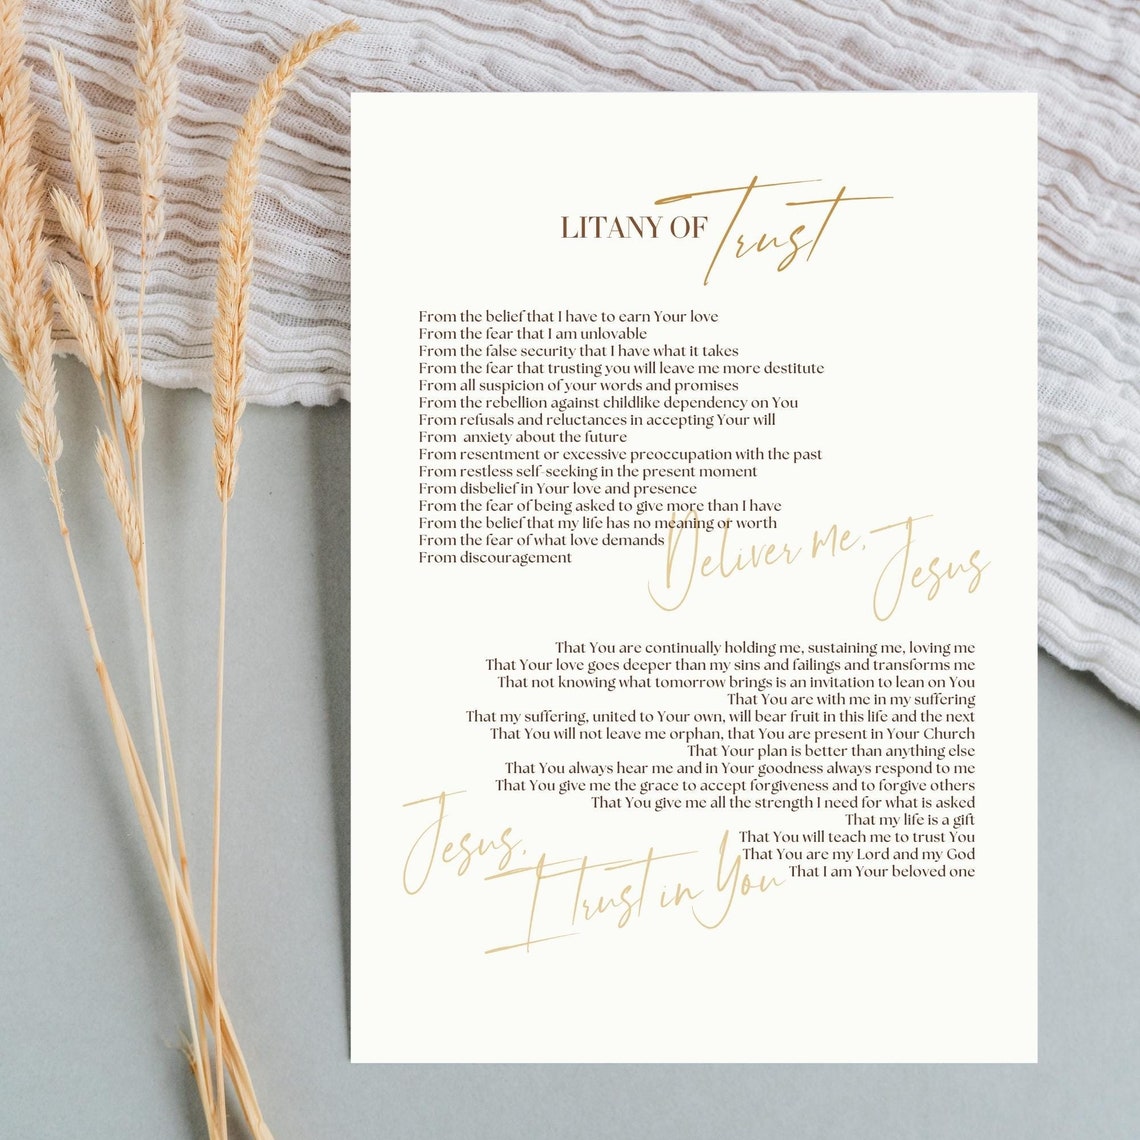 LITANY OF Trust
From the belief that I have to earn Your love
From the fear that I am unlovable
From the false security that I have what it takes
From the fear that trusting you will leave me more destitute
From all suspicion of your words and promises
From the rebellion against childlike dependency on You
From refusals and reluctances in accepting Your will
From  anxiety about the future
From resentment or excessive preoccupation with the past
From restless self-seeking in the present moment
From disbelief in Your love and presence
From the fear of being asked to give more than I have
From the belief that my life has no meaning or worth
From the fear of what love demands
From discouragement
Deliver me, Jesus
That You are continually holding me, sustaining me, loving me
That Your love goes deeper than my sins and failings and transforms me
That not knowing what tomorrow brings is an invitation to lean on You
That You are with me in my suffering
That my suffering, united to Your own, will bear fruit in this life and the next
That You will not leave me orphan, that You are present in Your Church
That Your plan is better than anything else
That You always hear me and in Your goodness always respond to me
That You give me the grace to accept forgiveness and to forgive others
That You give me all the strength I need for what is asked
That my life is a gift
That You will teach me to trust You
That You are my Lord and my God
That I am Your beloved one
Jesus,
I trust in You